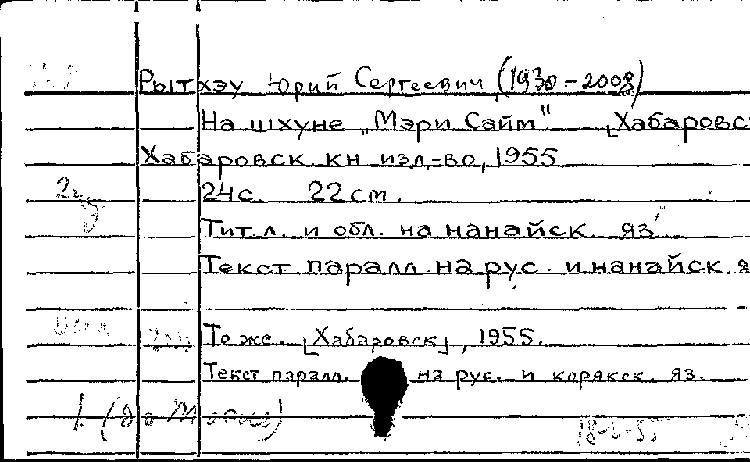 Рытхэу Юрий Сергеевич (1930-2008)
На шхуне „Мэри Сайм" [Хабаровс
Хабаровск. кн. изд.-во, 1955
24с. 22см.
Тит. л. и обл. на нанайск. яз.
Текст паралл. на рус. и нанайск. я
То же. [Хабаровск], 1955.
Текст паралл. на рус. и корякск. яз.